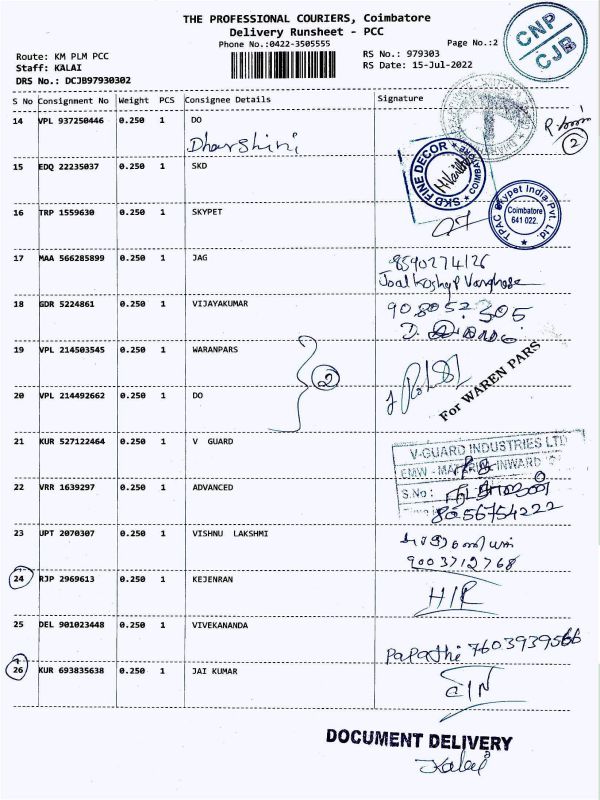 THE PROFESSIONAL COURIERS, Coimbatore
Delivery Runsheet - PCC
Phone No.:0422-3505555
Page No.:2
CNP
CJB
Route: KM PLM PCC
RS No.: 979303
Staff: KALAI
RS Date: 15-Jul-2022
DRS No.: DCJB97930302
S No Consignment No Weight PCS Consignee Details Signature
14 VPL 937250446 0.250 1 DO
Dharshini
2
15 EDQ 22235037 0.250 1 SKD
SKD FINE DECOR COIMBATORE
16 TRP 1559630 0.250 1 SKYPET
TPAC Skypet India Pvt. Ltd.
Coimbatore
641 022.
17 MAA 566285899 0.250 1 JAG
8590274126
18 GDR 5224861 0.250 1 VIJAYAKUMAR
908052 305
19 VPL 214503545 0.250 1 WARANPARS
2
For WAREN PARS
20 VPL 214492662 0.250 1 DO
21 KUR 527122464 0.250 1 V GUARD
V-GUARD INDUSTRIES LTD
INWARD
S.No :
22 VRR 1639297 0.250 1 ADVANCED
8056754222
23 UPT 2070307 0.250 1 VISHNU LAKSHMI
9003712768
24 RJP 2969613 0.250 1 KEJENRAN
H/R
25 DEL 901023448 0.250 1 VIVEKANANDA
Papathi 7603939566
26 KUR 693835638 0.250 1 JAI KUMAR
DOCUMENT DELIVERY
Kalai